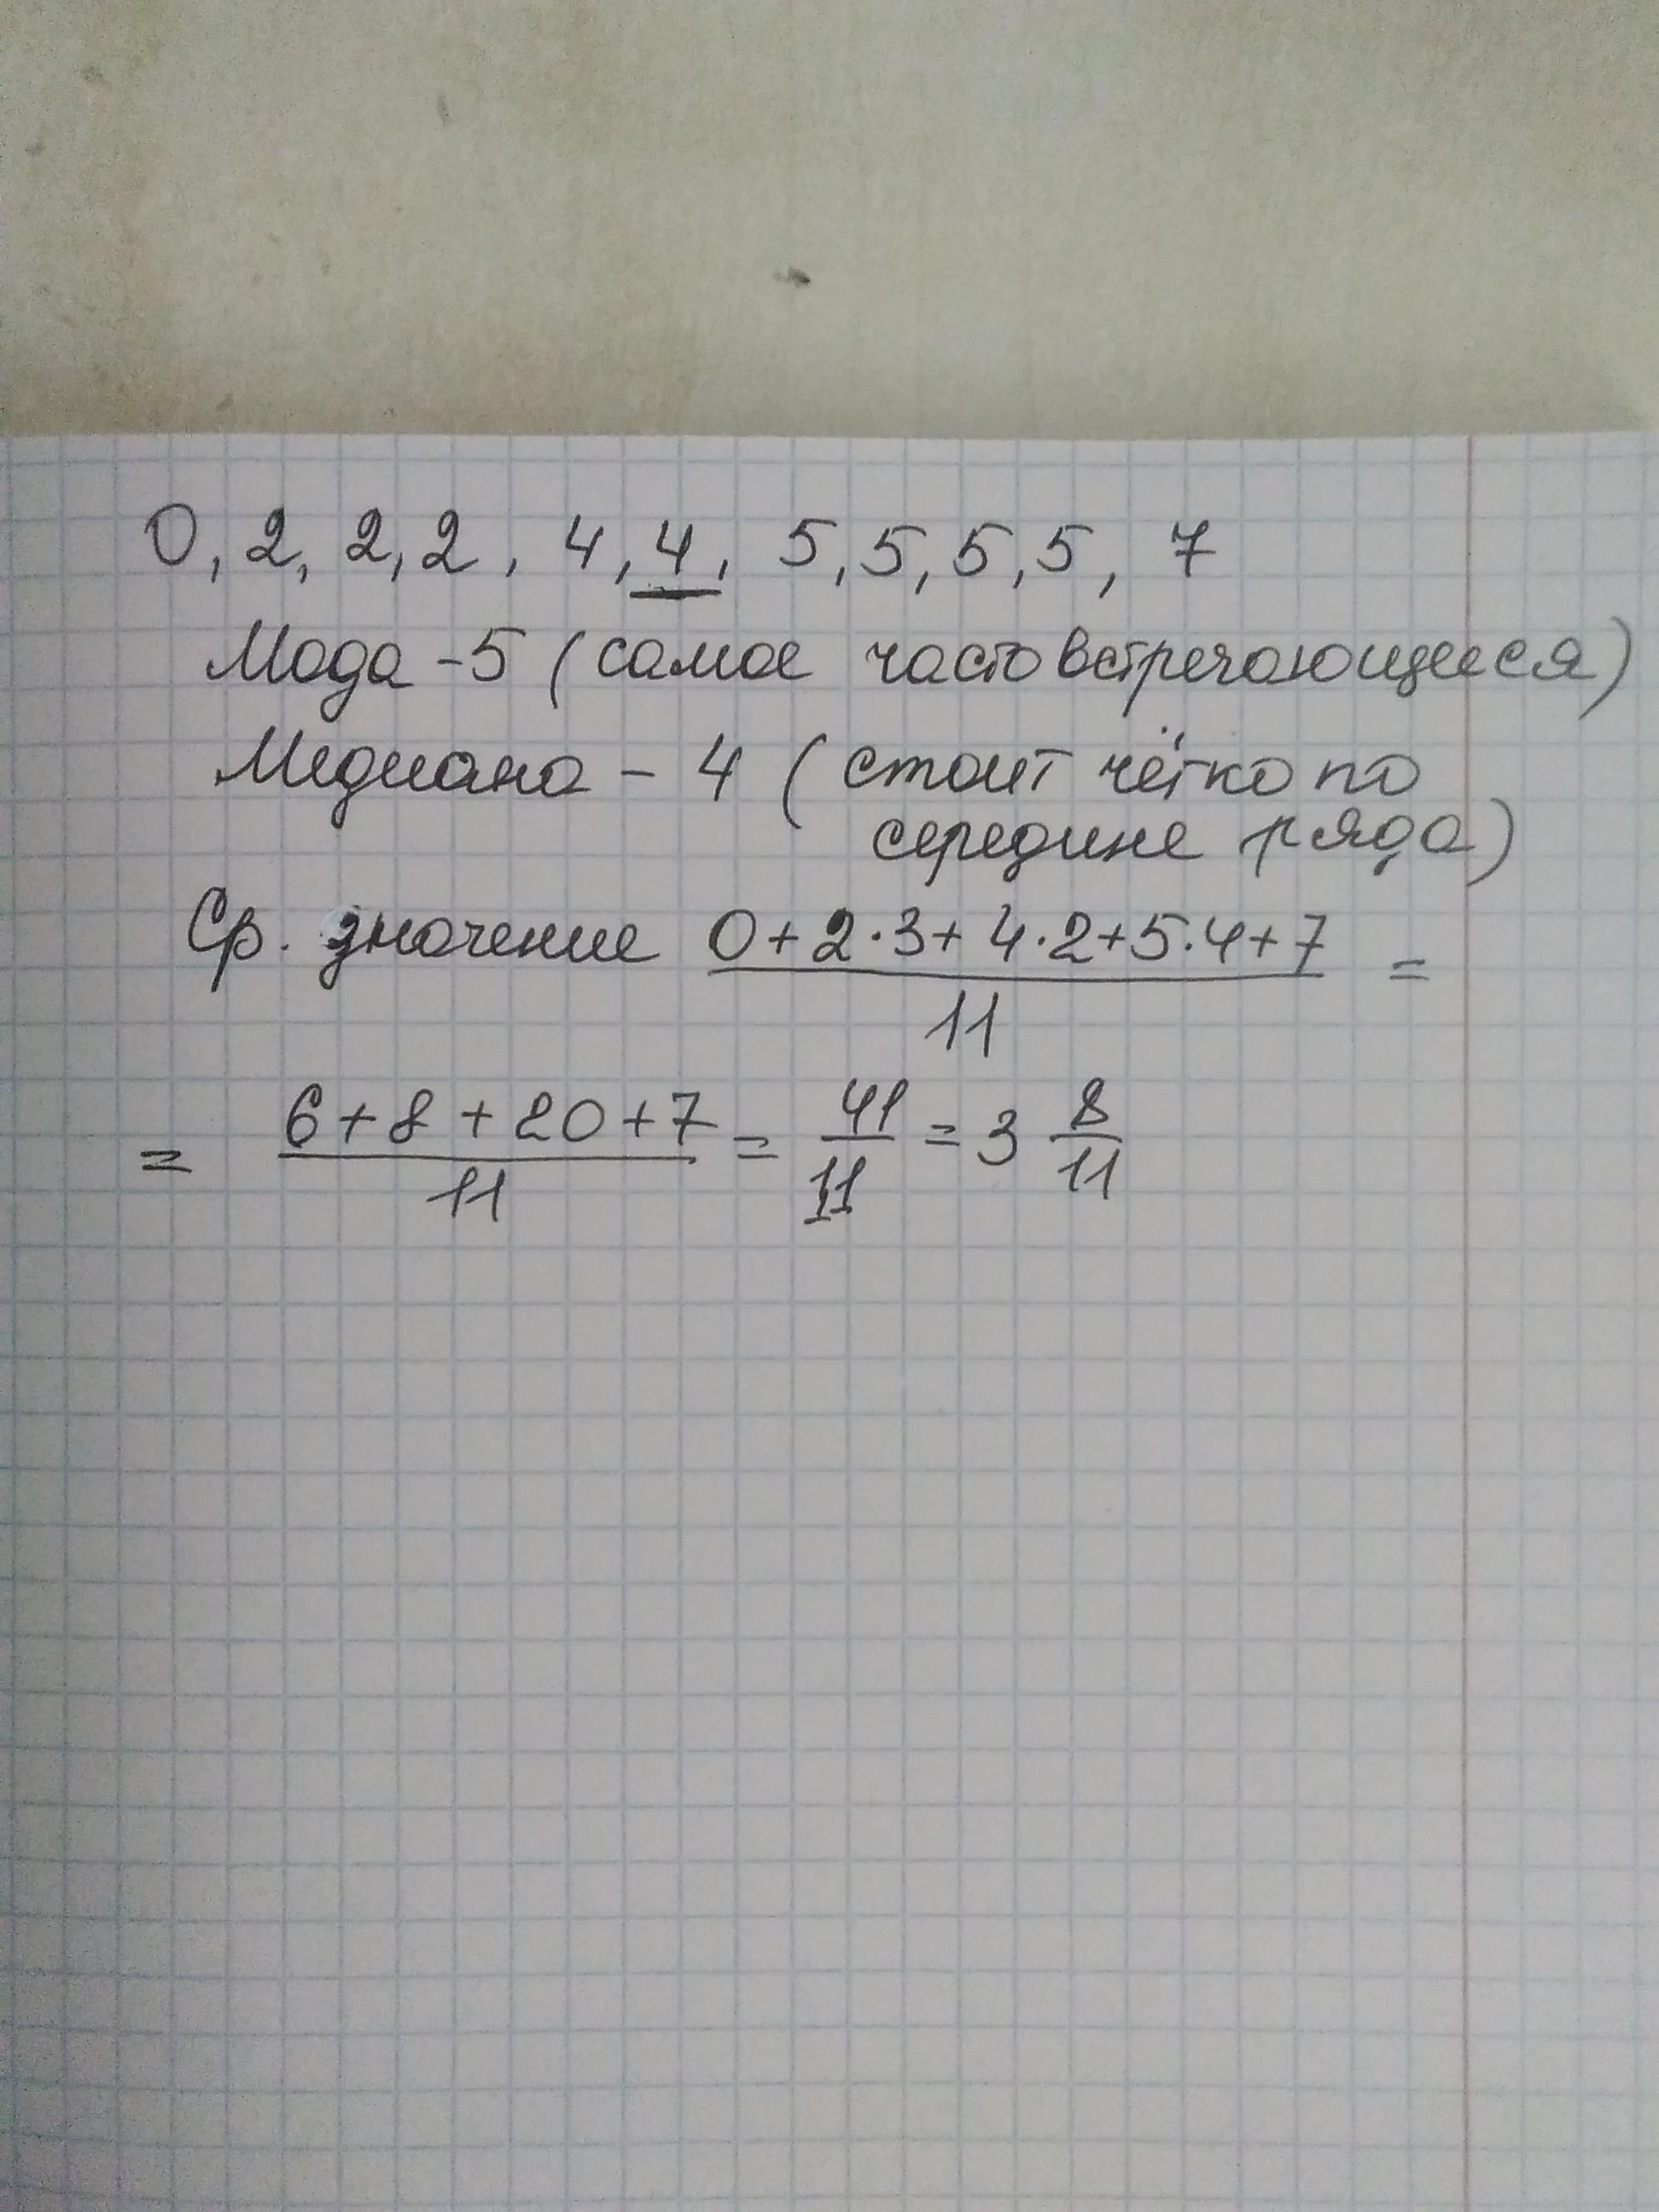 0, 2, 2, 2, 4, 4, 5, 5, 5, 5, 7
Мода - 5 (самое часто встречающееся)
Медиана - 4 (стоит чётко по
середине ряда)
Ср. значение (0+2·3+4·2+5·4+7)/11 =
= (6+8+20+7)/11 = 41/11 = 3 8/11